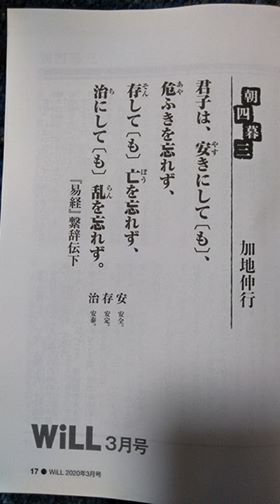 朝四暮三
加地伸行
君子は、安きにして〔も〕、
危ふきを忘れず、
存して〔も〕亡を忘れず、
治にして〔も〕乱を忘れず。
『易経』繋辞伝下
安 安全。
存 安定。
治 安泰。
WiLL 3月号
17 ● WiLL 2020年3月号